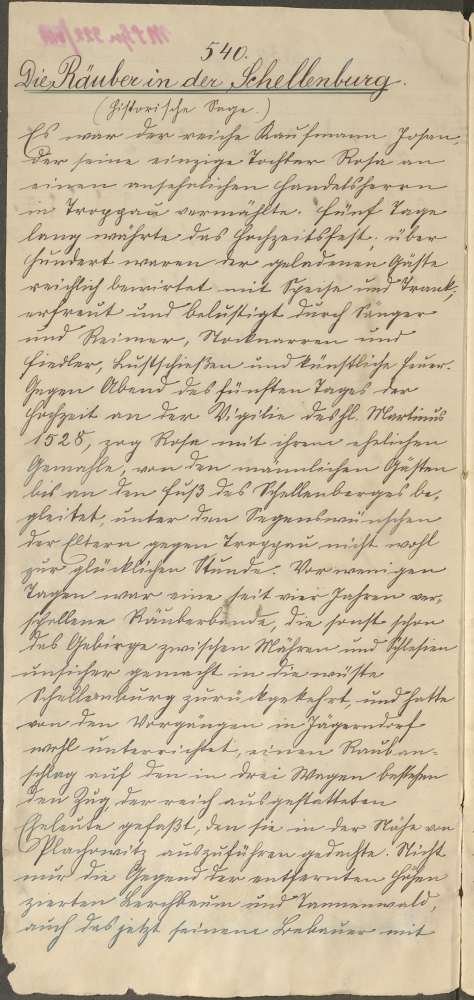 540.
Die Räuber in der Schellenburg.
(Historische Sage.)
Es war der reiche Kaufmann Josan,
der seine einzige Tochter Rosa an
einen ansehnlichen Handelsherrn
in Troppau vermählte. Fünf Tage
lang währte das Hochzeitsfest, über
hundert waren der geladenen Gäste
reichlich bewirtet mit Speise und Trank,
erfreut und belustigt durch Sänger
und Reimer, Stocknarren und
Fiedler, Lustschießen und künstliche Feuer.
Gegen Abend des fünften Tages der
Hochzeit an der Vigilie des hl. Martinus
1528, zog Rosa mit ihrem ehelichen
Gemahle, von den männlichen Gästen
bis an den Fuß des Schellenberges be-
gleitet, unter den Segenswünschen
der Eltern gegen Troppau nicht wohl
zur glücklichen Stunde. Vor wenigen
Tagen war eine seit vier Jahren ver-
schollene Räuberbande, die sonst schon
das Gebirge zwischen Mähren und Schlesien
unsicher gemacht in die wüste
Schellenburg zurückgekehrt, und hatte
von den Vorgängen in Jägerndorf
wohl unterrichtet, einen Rauban-
schlag auf den in drei Wagen bestehen
den Zug der reich ausgestatteten
Eheleute gefaßt, den sie in der Nähe von
Plachowitz auszuführen gedachte. Nicht
nur die Gegend der entfernten Höhen
zierten Lerchbaum und Tannenwald,
auch das jetzt seinem Bebauer mit